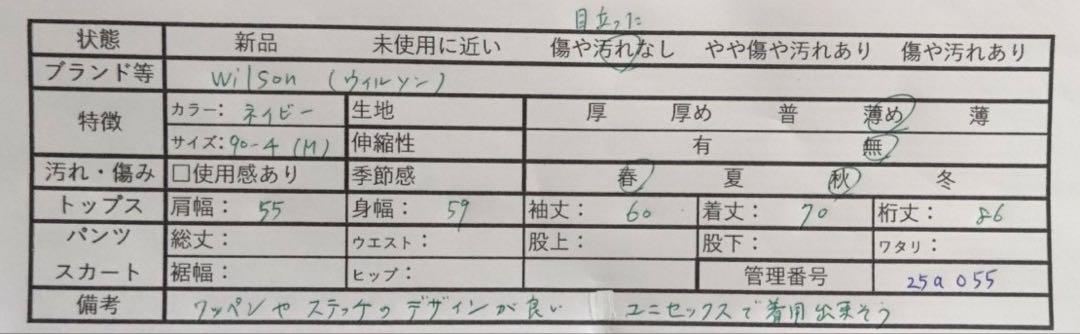 目立った
状態 新品 未使用に近い 傷や汚れなし やや傷や汚れあり 傷や汚れあり
ブランド等 Wilson (ウィルソン)
特徴 カラー: ネイビー 生地 厚 厚め 普 薄め 薄
サイズ: 90-4 (M) 伸縮性 有 無
汚れ・傷み □使用感あり 季節感 春 夏 秋 冬
トップス 肩幅: 55 身幅: 59 袖丈: 60 着丈: 70 桁丈: 86
パンツ 総丈: ウエスト: 股上: 股下: ワタリ:
スカート 裾幅: ヒップ: 管理番号 25a055
備考 ワッペンや ステッチのデザインが良い ユニセックスで着用出来そう